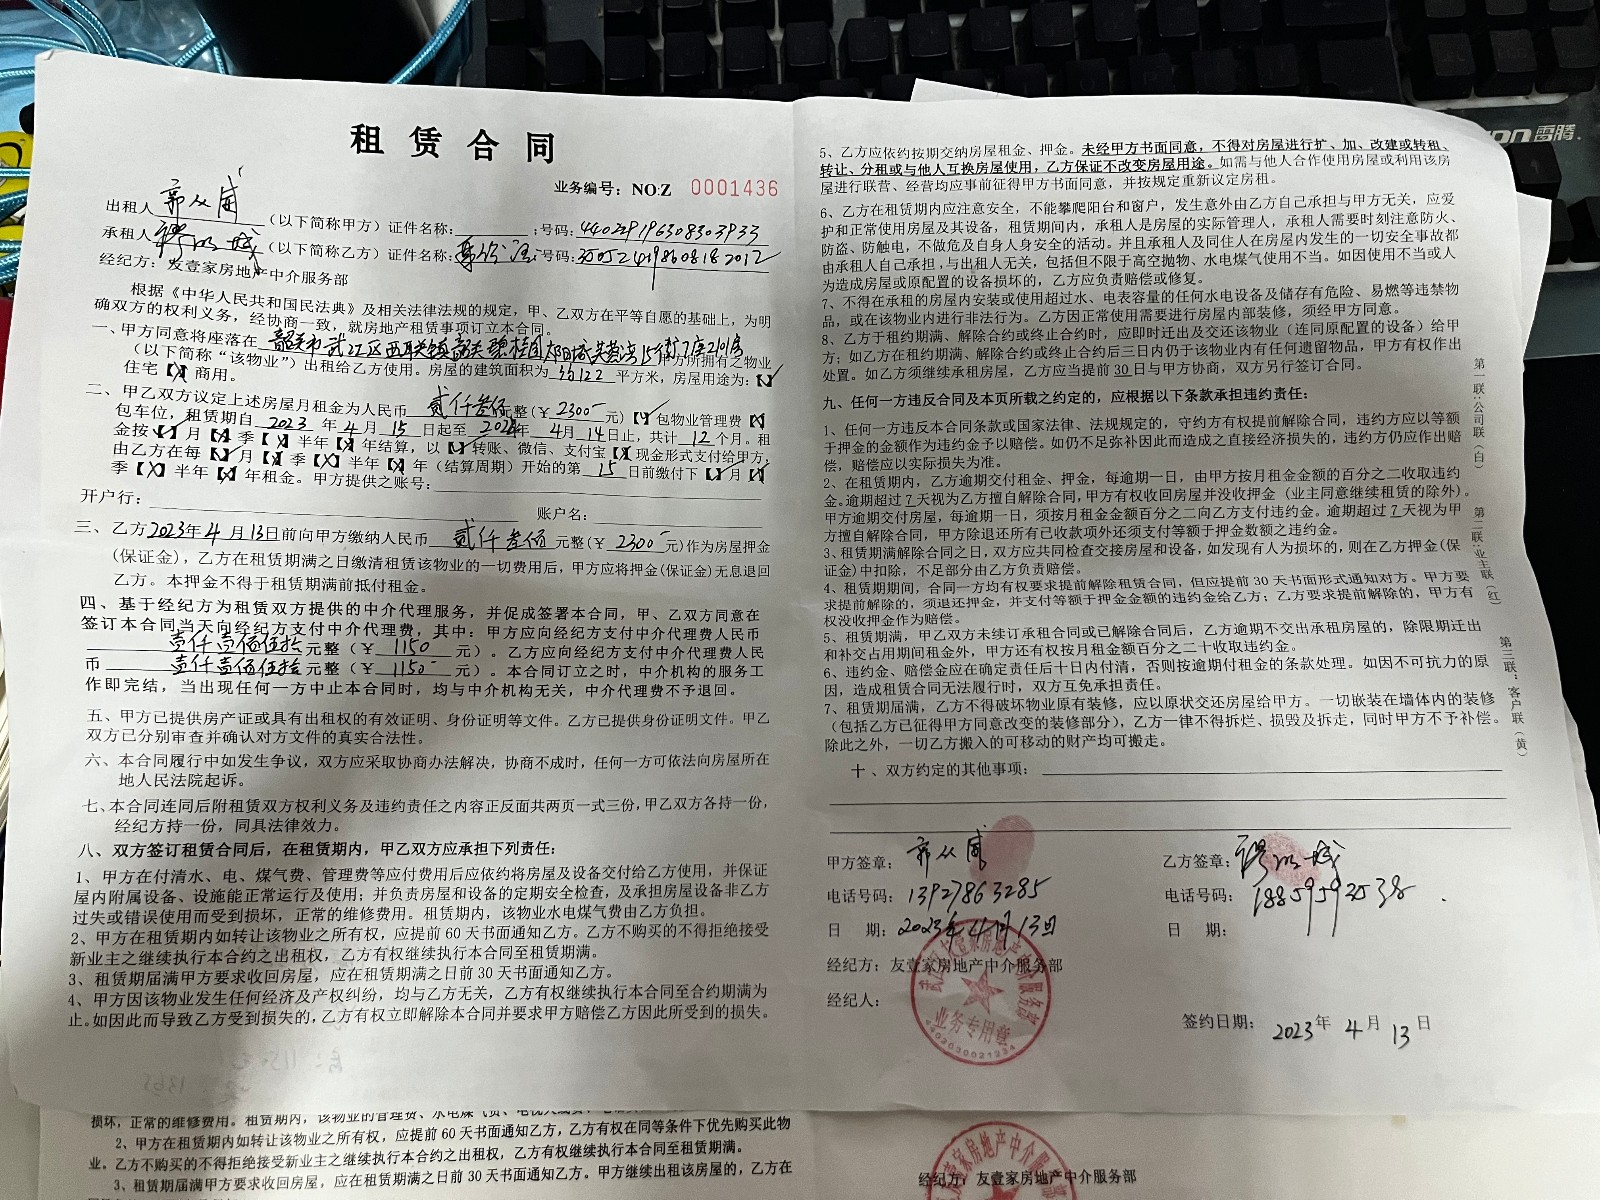 租赁合同
业务编号：NO:Z 0001436
出租人（以下简称甲方）证件名称：；号码：440229196308303933
承租人（以下简称乙方）证件名称：号码：
经纪方：友壹家房地产中介服务部
根据《中华人民共和国民法典》及相关法律法规的规定，甲、乙双方在平等自愿的基础上，为明
确双方的权利义务，经协商一致，就房地产租赁事项订立本合同。
一、甲方同意将座落在 韶关市武江区西联镇韶关碧桂园太阳城芙蓉湾15街7座2101房 甲方所拥有之物业
（以下简称“该物业”）出租给乙方使用。房屋的建筑面积为 约122 平方米，房屋用途为：【√】
住宅【X】商用。
二、甲乙双方议定上述房屋月租金为人民币 贰仟叁佰元整（￥ 2300 元）【√】包物业管理费【X】
包车位，租赁期自 2023 年 4 月 15 日起至 2024年 4月 14日止，共计 12 个月。租
金按【√】月【X】季【X】半年【X】年结算，以【√】转账、微信、支付宝【X】现金形式支付给甲方，
由乙方在每【√】月【X】季【X】半年【X】年（结算周期）开始的第 15 日前缴付下【√】月【X】
季【X】半年【X】年租金。甲方提供之账号：
开户行： 账户名：
三、乙方2023年 4 月 13日前向甲方缴纳人民币 贰仟叁佰 元整（￥ 2300 元）作为房屋押金
（保证金），乙方在租赁期满之日缴清租赁该物业的一切费用后，甲方应将押金(保证金)无息退回
乙方。本押金不得于租赁期满前抵付租金。
四、基于经纪方为租赁双方提供的中介代理服务，并促成签署本合同，甲、乙双方同意在
签订本合同当天向经纪方支付中介代理费，其中：甲方应向经纪方支付中介代理费人民币
壹仟壹佰伍拾元整（￥ 1150 元）。乙方应向经纪方支付中介代理费人民
币 壹仟壹佰伍拾元整（￥ 1150 元）。本合同订立之时，中介机构的服务工
作即完结，当出现任何一方中止本合同时，均与中介机构无关，中介代理费不予退回。
五、甲方已提供房产证或具有出租权的有效证明、身份证明等文件。乙方已提供身份证明文件。甲乙
双方已分别审查并确认对方文件的真实合法性。
六、本合同履行中如发生争议，双方应采取协商办法解决，协商不成时，任何一方可依法向房屋所在
地人民法院起诉。
七、本合同连同后附租赁双方权利义务及违约责任之内容正反面共两页一式三份，甲乙双方各持一份，
经纪方持一份，同具法律效力。
八、双方签订租赁合同后，在租赁期内，甲乙双方应承担下列责任：
1、甲方在付清水、电、煤气费、管理费等应付费用后应依约将房屋及设备交付给乙方使用，并保证
屋内附属设备、设施能正常运行及使用；并负责房屋和设备的定期安全检查，及承担房屋设备非乙方
过失或错误使用而受到损坏，正常的维修费用。租赁期内，该物业水电煤气费由乙方负担。
2、甲方在租赁期内如转让该物业之所有权，应提前 60 天书面通知乙方。乙方不购买的不得拒绝接受
新业主之继续执行本合约之出租权，乙方有权继续执行本合同至租赁期满。
3、租赁期届满甲方要求收回房屋，应在租赁期满之日前 30 天书面通知乙方。
4、甲方因该物业发生任何经济及产权纠纷，均与乙方无关，乙方有权继续执行本合同至合约期满为
止。如因此而导致乙方受到损失的，乙方有权立即解除本合同并要求甲方赔偿乙方因此所受到的损失。
5、乙方应依约按期交纳房屋租金、押金。未经甲方书面同意，不得对房屋进行扩、加、改建或转租、
转让、分租或与他人互换房屋使用，乙方保证不改变房屋用途。如需与他人合作使用房屋或利用该房
屋进行联营、经营均应事前征得甲方书面同意，并按规定重新议定房租。
6、乙方在租赁期内应注意安全，不能攀爬阳台和窗户，发生意外由乙方自己承担与甲方无关，应爱
护和正常使用房屋及其设备，租赁期间内，承租人是房屋的实际管理人，承租人需要时刻注意防火、
防盗、防触电，不做危及自身人身安全的活动。并且承租人及同住人在房屋内发生的一切安全事故都
由承租人自己承担，与出租人无关，包括但不限于高空抛物、水电煤气使用不当。如因使用不当或人
为造成房屋或原配置的设备损坏的，乙方应负责赔偿或修复。
7、不得在承租的房屋内安装或使用超过水、电表容量的任何水电设备及储存有危险、易燃等违禁物
品，或在该物业内进行非法行为。乙方因正常使用需要进行房屋内部装修，须经甲方同意。
8、乙方于租约期满、解除合约或终止合约时，应即时迁出及交还该物业（连同原配置的设备）给甲
方；如乙方在租约期满、解除合约或终止合约后三日内仍于该物业内有任何遗留物品，甲方有权作出
处置。如乙方须继续承租房屋，乙方应当提前 30 日与甲方协商，双方另行签订合同。
九、任何一方违反合同及本页所载之约定的，应根据以下条款承担违约责任：
1、任何一方违反本合同条款或国家法律、法规规定的，守约方有权提前解除合同，违约方应以等额
于押金的金额作为违约金予以赔偿。如仍不足弥补因此而造成之直接经济损失的，违约方仍应作出赔
偿，赔偿应以实际损失为准。
2、在租赁期内，乙方逾期交付租金、押金，每逾期一日，由甲方按月租金金额的百分之二收取违约
金。逾期超过 7 天视为乙方擅自解除合同，甲方有权收回房屋并没收押金（业主同意继续租赁的除外）。
甲方逾期交付房屋，每逾期一日，须按月租金金额百分之二向乙方支付违约金。逾期超过 7 天视为甲
方擅自解除合同，甲方除退还所有已收款项外还须支付等额于押金数额之违约金。
3、租赁期满解除合同之日，双方应共同检查交接房屋和设备，如发现有人为损坏的，则在乙方押金(保
证金)中扣除，不足部分由乙方负责赔偿。
4、租赁期期间，合同一方均有权要求提前解除租赁合同，但应提前 30 天书面形式通知对方。甲方要
求提前解除的，须退还押金，并支付等额于押金金额的违约金给乙方；乙方要求提前解除的，甲方有
权没收押金作为赔偿。
5、租赁期满，甲乙双方未续订承租合同或已解除合同后，乙方逾期不交出承租房屋的，除限期迁出
和补交占用期间租金外，甲方还有权按月租金额百分之二十收取违约金。
6、违约金、赔偿金应在确定责任后十日内付清，否则按逾期付租金的条款处理。如因不可抗力的原
因，造成租赁合同无法履行时，双方互免承担责任。
7、租赁期届满，乙方不得破坏物业原有装修，应以原状交还房屋给甲方。一切嵌装在墙体内的装修
（包括乙方已征得甲方同意改变的装修部分），乙方一律不得拆烂、损毁及拆走，同时甲方不予补偿。
除此之外，一切乙方搬入的可移动的财产均可搬走。
十、双方约定的其他事项：
甲方签章：
电话号码：13927863285
日 期：2023年4月13日
经纪方：友壹家房地产中介服务部
经纪人：
乙方签章：
电话号码：18859592538
日 期：
签约日期：2023年 4 月 13 日
武江区友壹家房地产中介服务部
业务专用章
4402030021234
第一联：公司联（白）
第二联：业主联（红）
第三联：客户联（黄）
损坏，正常的维修费用。租赁期内，该物业的管理费、水电煤气费、电视
2、甲方在租赁期内如转让该物业之所有权，应提前 60 天书面通知乙方，乙方有权在同等条件下优先购买此物
业。乙方不购买的不得拒绝接受新业主之继续执行本合约之出租权，乙方有权继续执行本合同至租赁期满。
3、租赁期届满甲方要求收回房屋，应在租赁期满之日前 30 天书面通知乙方。甲方继续出租该房屋的，乙方在
经纪方：友壹家房地产中介服务部
雷腾